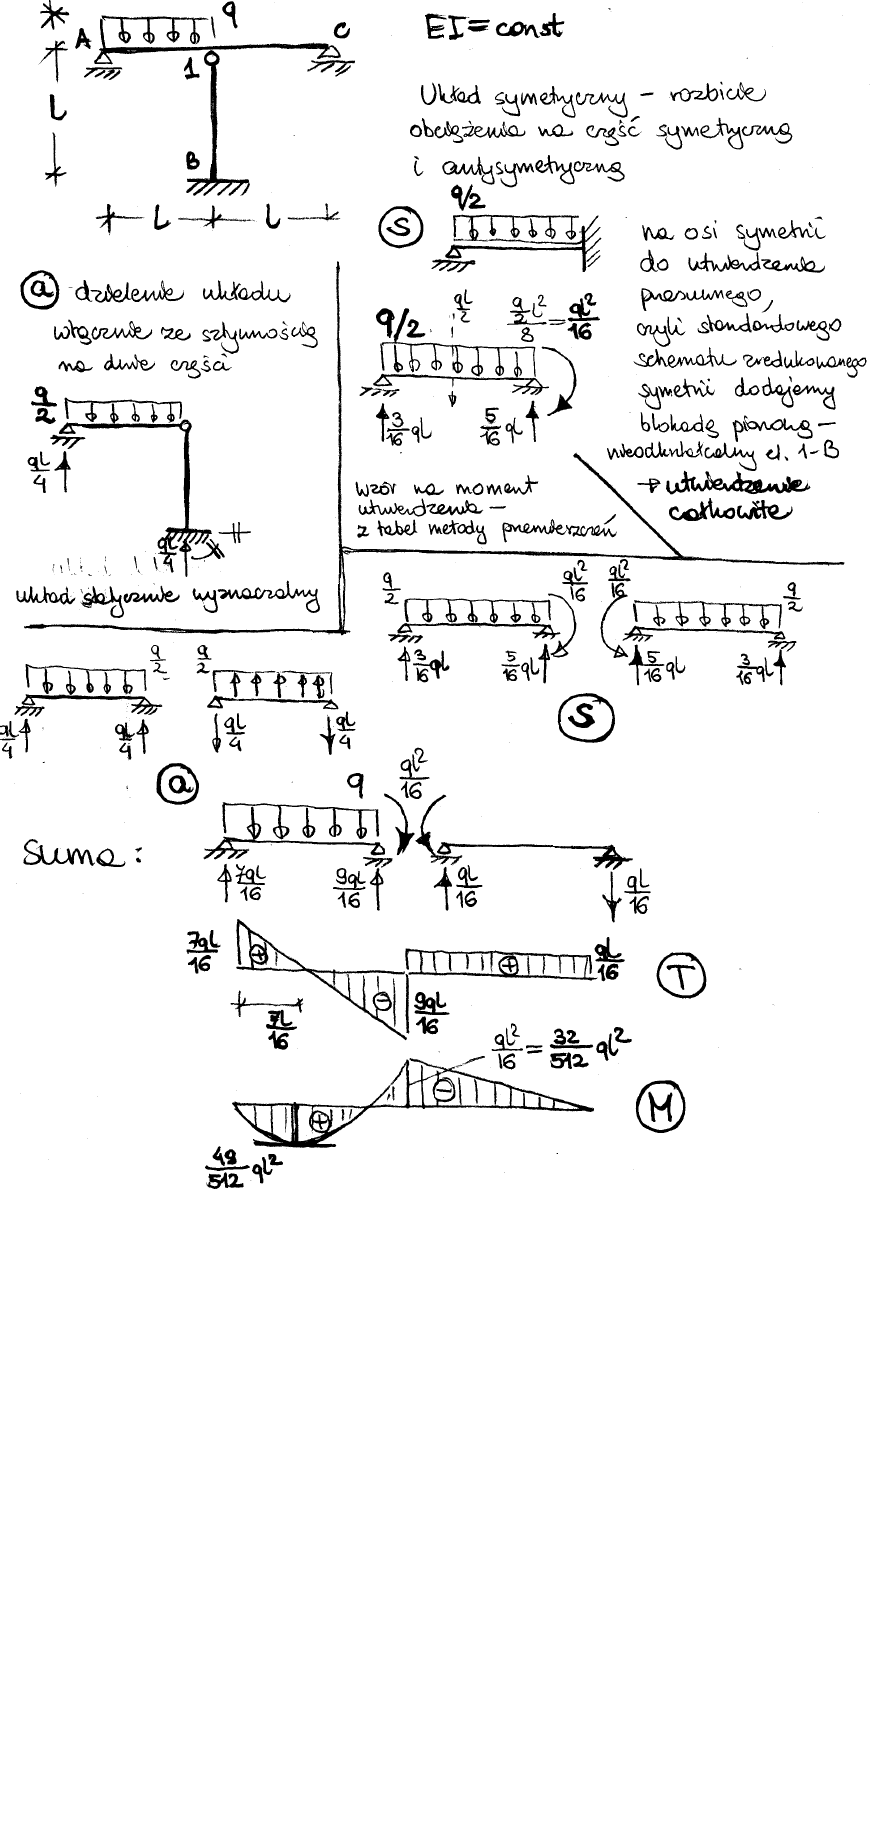 q
A
C
EI = const
1
L
B
L
L
Układ symetryczny – rozbicie
obciążenia na część symetryczną
i antysymetryczną
q/2
S
na osi symetrii
do utwierdzenia
przesuwnego,
czyli standardowego
schematu zredukowanego
symetrii dodajemy
blokadę pionową –
nieodkształcalny el. 1-B
→ utwierdzenie
całkowite
a
dzielenie układu
włącznie ze sztywnością
na dwie części
q/2
ql/4
ql/4
układ statycznie wyznaczalny
q/2
ql/2
q/2 l²/8 = ql²/16
3/16 ql
5/16 ql
Wzór na moment
utwierdzenia –
z tabel metody przemieszczeń
q/2
ql²/16
ql²/16
q/2
3/16 ql
5/16 ql
5/16 ql
3/16 ql
S
q/2
q/2
ql/4
ql/4
ql/4
ql/4
a
Suma:
q
ql²/16
7ql/16
9ql/16
ql/16
ql/16
7ql/16
+
-
+
ql/16
T
7l/16
9ql/16
ql²/16 = 32/512 ql²
+
-
M
49/512 ql²